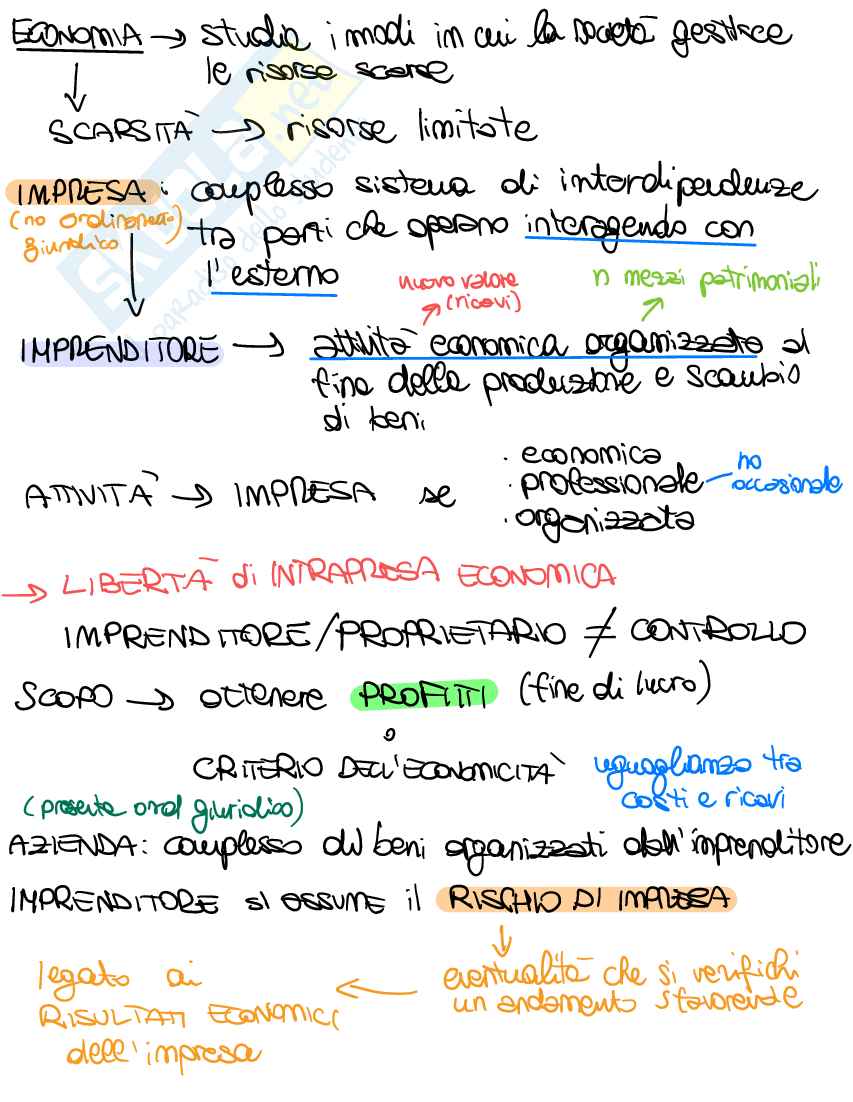 ECONOMIA → studia i modi in cui la società gestisce
le risorse scarse
SCARSITÀ → risorse limitate
IMPRESA : complesso sistema di interdipendenze
(no ordinamento
giuridico)
tra parti che operano interagendo con
l'esterno
nuovo valore
(ricavi)
n mezzi patrimoniali
IMPRENDITORE → attività economica organizzata al
fine della produzione e scambio
di beni
ATTIVITÀ → IMPRESA se
· economica
· professionale – no
occasionale
· organizzata
→ LIBERTÀ di INTRAPRESA ECONOMICA
IMPRENDITORE/PROPRIETARIO ≠ CONTROLLO
SCOPO → ottenere PROFITTI (fine di lucro)
o
CRITERIO DELL'ECONOMICITÀ uguaglianza tra
costi e ricavi
(presente ord giuridico)
AZIENDA: complesso di beni organizzati dall'imprenditore
IMPRENDITORE si assume il RISCHIO DI IMPRESA
eventualità che si verifichi
un andamento sfavorevole
legato ai
RISULTATI ECONOMICI
dell'impresa
SKUOLA.net
paradiso dello studente